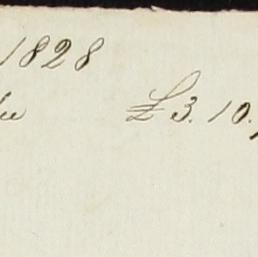 1828
£3.10.